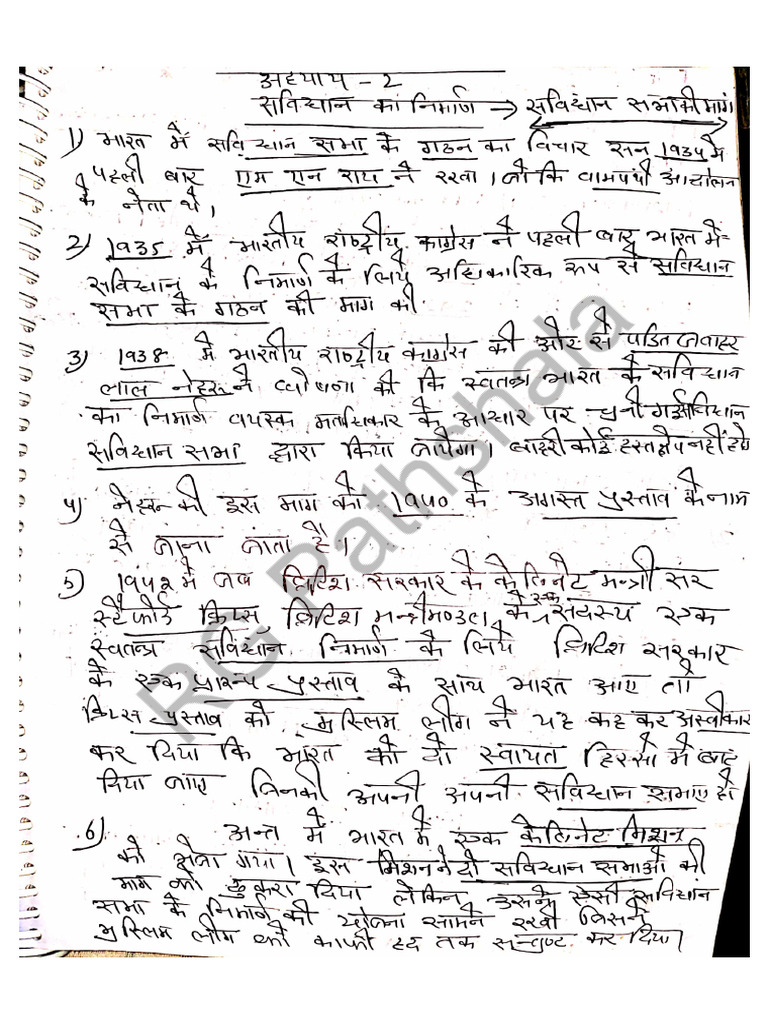 अध्याय - 2
संविधान का निर्माण → संविधान सभा की मांग
1) भारत में संविधान सभा के गठन का विचार सन 1934 में
पहली बार एम एन राय ने रखा। जो कि वामपंथी आंदोलन
के नेता थे।
2) 1935 में भारतीय राष्ट्रीय कांग्रेस ने पहली बार भारत में
संविधान के निर्माण के लिये अधिकारिक रूप से संविधान
सभा के गठन की मांग की
3) 1938 में भारतीय राष्ट्रीय कांग्रेस की ओर से पंडित जवाहर
लाल नेहरू ने घोषना की कि स्वतन्त्र भारत के संविधान
का निर्माण वयस्क मताधिकार के आधार पर चुनी गई संविधान
संविधान सभा द्वारा किया जायेगा। बाहरी कोई हस्तक्षेप नहीं होगा
4) नेहरू की इस मांग को 1940 के अगस्त प्रस्ताव के नाम
से जाना जाता है।
5) 1942 में जब ब्रिटिश सरकार के केबिनेट मन्त्री सर
स्टैफोर्ड क्रिप्स, ब्रिटिश मन्त्रीमण्डल के एक सदस्य एक
स्वतन्त्र संविधान निर्माण के लिये ब्रिटिश सरकार
के एक प्रारूप प्रस्ताव के साथ भारत आए तो
क्रिप्स प्रस्ताव को मुस्लिम लीग ने यह कह कर अस्वीकार
कर दिया कि भारत को दो स्वायत हिस्सो में बांट
दिया जाए जिनकी अपनी अपनी संविधान सभाए हो
6) अन्त में भारत में एक केबिनेट मिशन
को भेजा गया। इस मिशन ने दो संविधान सभाओ की
मांग को ठुकरा दिया लेकिन उसने ऐसी संविधान
सभा के निर्माण की योजना सामने रखी जिसने
मुस्लिम लीग को काफी हद तक सन्तुष्ट कर दिया।
RG Pathshala